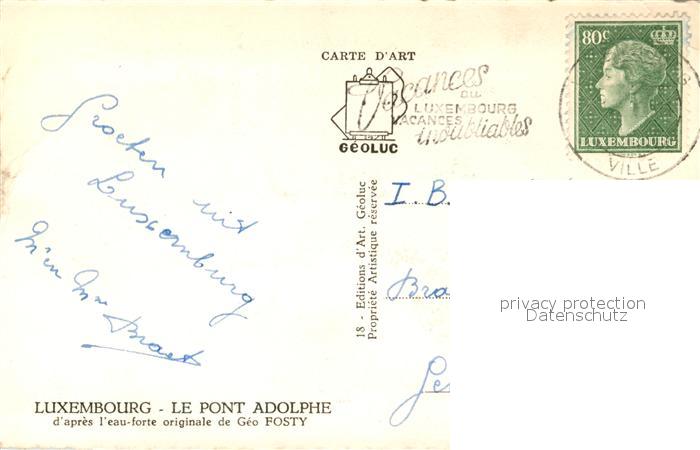 CARTE D'ART
GÉOLUC
Vacances
au
LUXEMBOURG
VACANCES
inoubliables
80c
LUXEMBOURG
VILLE
Groeten uit
Luxemburg
18 - Editions d'Art. Géoluc
Propriété Artistique réservée
I. B.
Bra
Ge
privacy protection
Datenschutz
LUXEMBOURG - LE PONT ADOLPHE
d'après l'eau-forte originale de Géo FOSTY